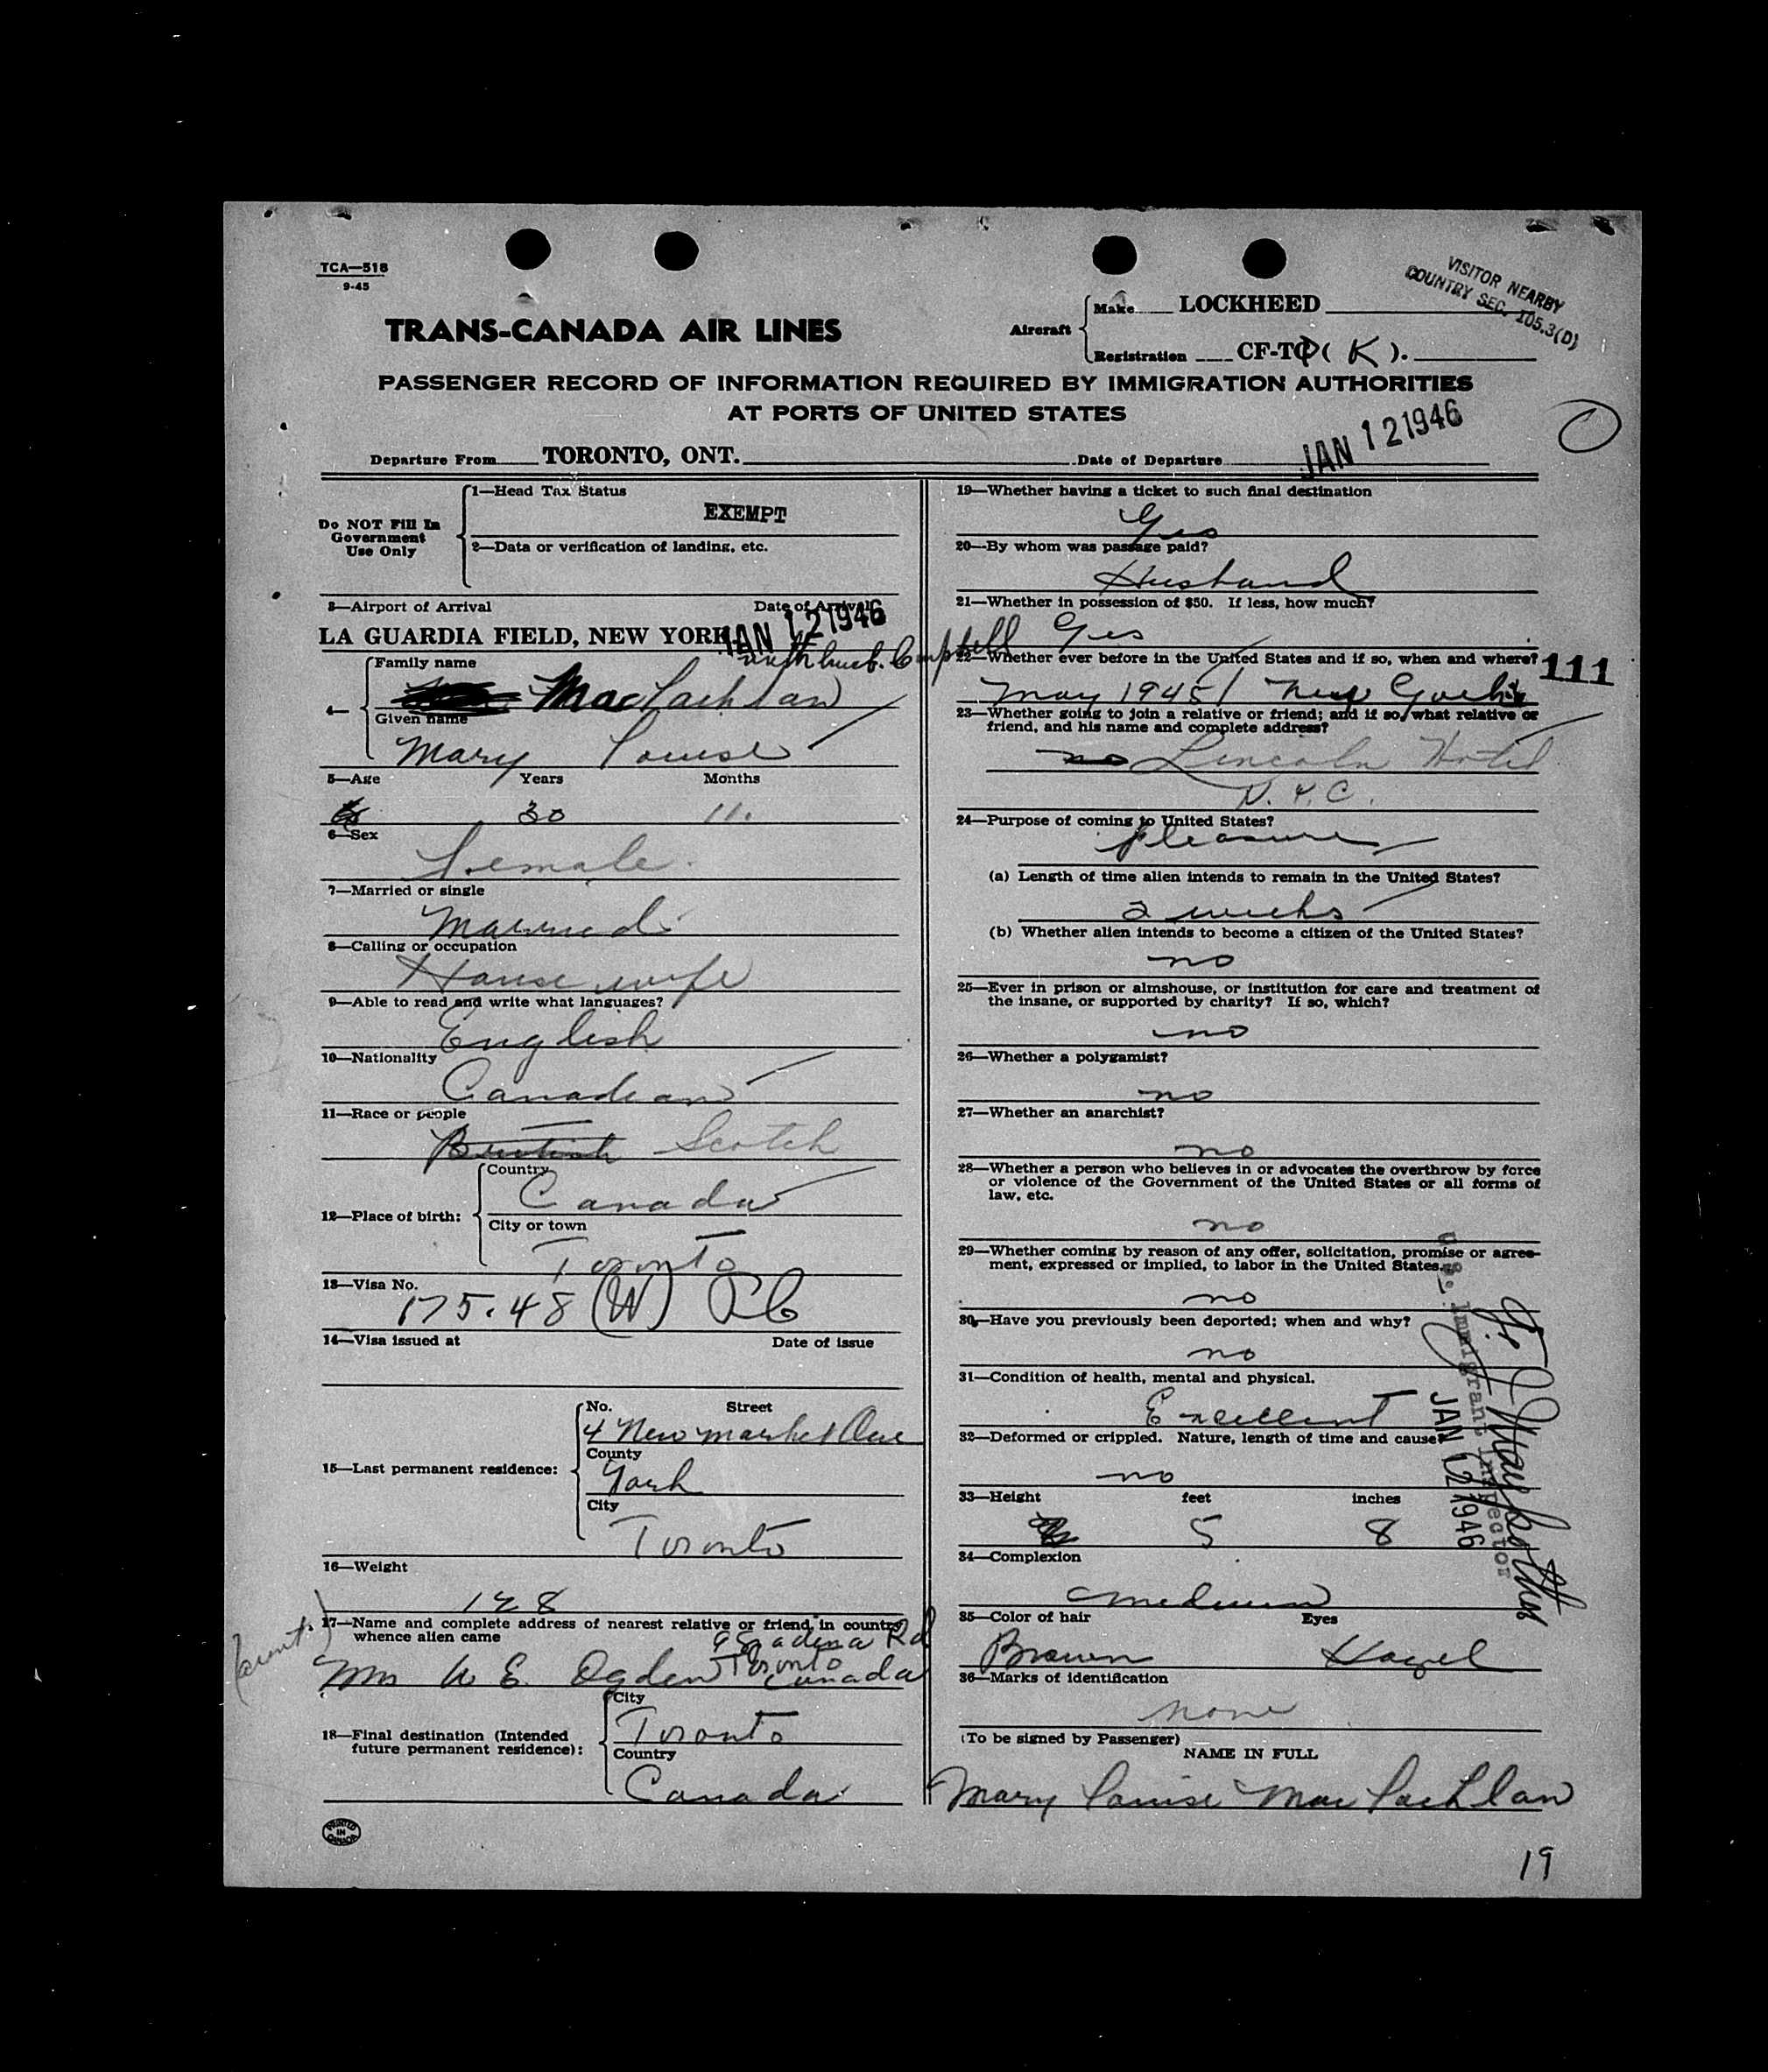 TCA—518
9-45
VISITOR NEARBY
COUNTRY SEC. 105.3(D)
TRANS-CANADA AIR LINES
Aircraft
Make LOCKHEED
Registration CF-TC ( K ).
PASSENGER RECORD OF INFORMATION REQUIRED BY IMMIGRATION AUTHORITIES
AT PORTS OF UNITED STATES
Departure From TORONTO, ONT. Date of Departure JAN 12 1946
Do NOT Fill In
Government
Use Only
1—Head Tax Status
EXEMPT
2—Data or verification of landing, etc.
3—Airport of Arrival Date of Arrival
LA GUARDIA FIELD, NEW YORK JAN 12 1946
with husb. Campbell
4—
Family name
MacLachlan
Given name
Mary Louise
5—Age Years Months
30 11.
6—Sex
Female.
7—Married or single
Married
8—Calling or occupation
Housewife
9—Able to read and write what languages?
English
10—Nationality
Canadian
11—Race or people
British Scotch
12—Place of birth:
Country
Canada
City or town
Toronto
13—Visa No.
175.48 (W)
14—Visa issued at Date of issue
15—Last permanent residence:
No. Street
4 Newmarket Ave
County
York
City
Toronto
16—Weight
128
17—Name and complete address of nearest relative or friend in country
whence alien came
(aunt)
9 Spadina Rd
Toronto
Mrs W E. Ogden Canada
18—Final destination (Intended
future permanent residence):
City
Toronto
Country
Canada
PRINTED
IN
CANADA
19—Whether having a ticket to such final destination
Yes
20—By whom was passage paid?
Husband
21—Whether in possession of $50. If less, how much?
Yes
22—Whether ever before in the United States and if so, when and where?
111
May 1945 New York
23—Whether going to join a relative or friend; and if so, what relative or
friend, and his name and complete address?
no Lincoln Hotel
N.Y.C.
24—Purpose of coming to United States?
pleasure
(a) Length of time alien intends to remain in the United States?
2 weeks
(b) Whether alien intends to become a citizen of the United States?
no
25—Ever in prison or almshouse, or institution for care and treatment of
the insane, or supported by charity? If so, which?
no
26—Whether a polygamist?
no
27—Whether an anarchist?
no
28—Whether a person who believes in or advocates the overthrow by force
or violence of the Government of the United States or all forms of
law, etc.
no
29—Whether coming by reason of any offer, solicitation, promise or agree-
ment, expressed or implied, to labor in the United States.
no
30—Have you previously been deported; when and why?
no
31—Condition of health, mental and physical.
Excellent
32—Deformed or crippled. Nature, length of time and cause?
no
33—Height feet inches
5 8
34—Complexion
medium
35—Color of hair Eyes
Brown Hazel
36—Marks of identification
none
(To be signed by Passenger)
NAME IN FULL
Mary Louise MacLachlan
U.S. Immigrant Inspector
JAN 12 1946
19